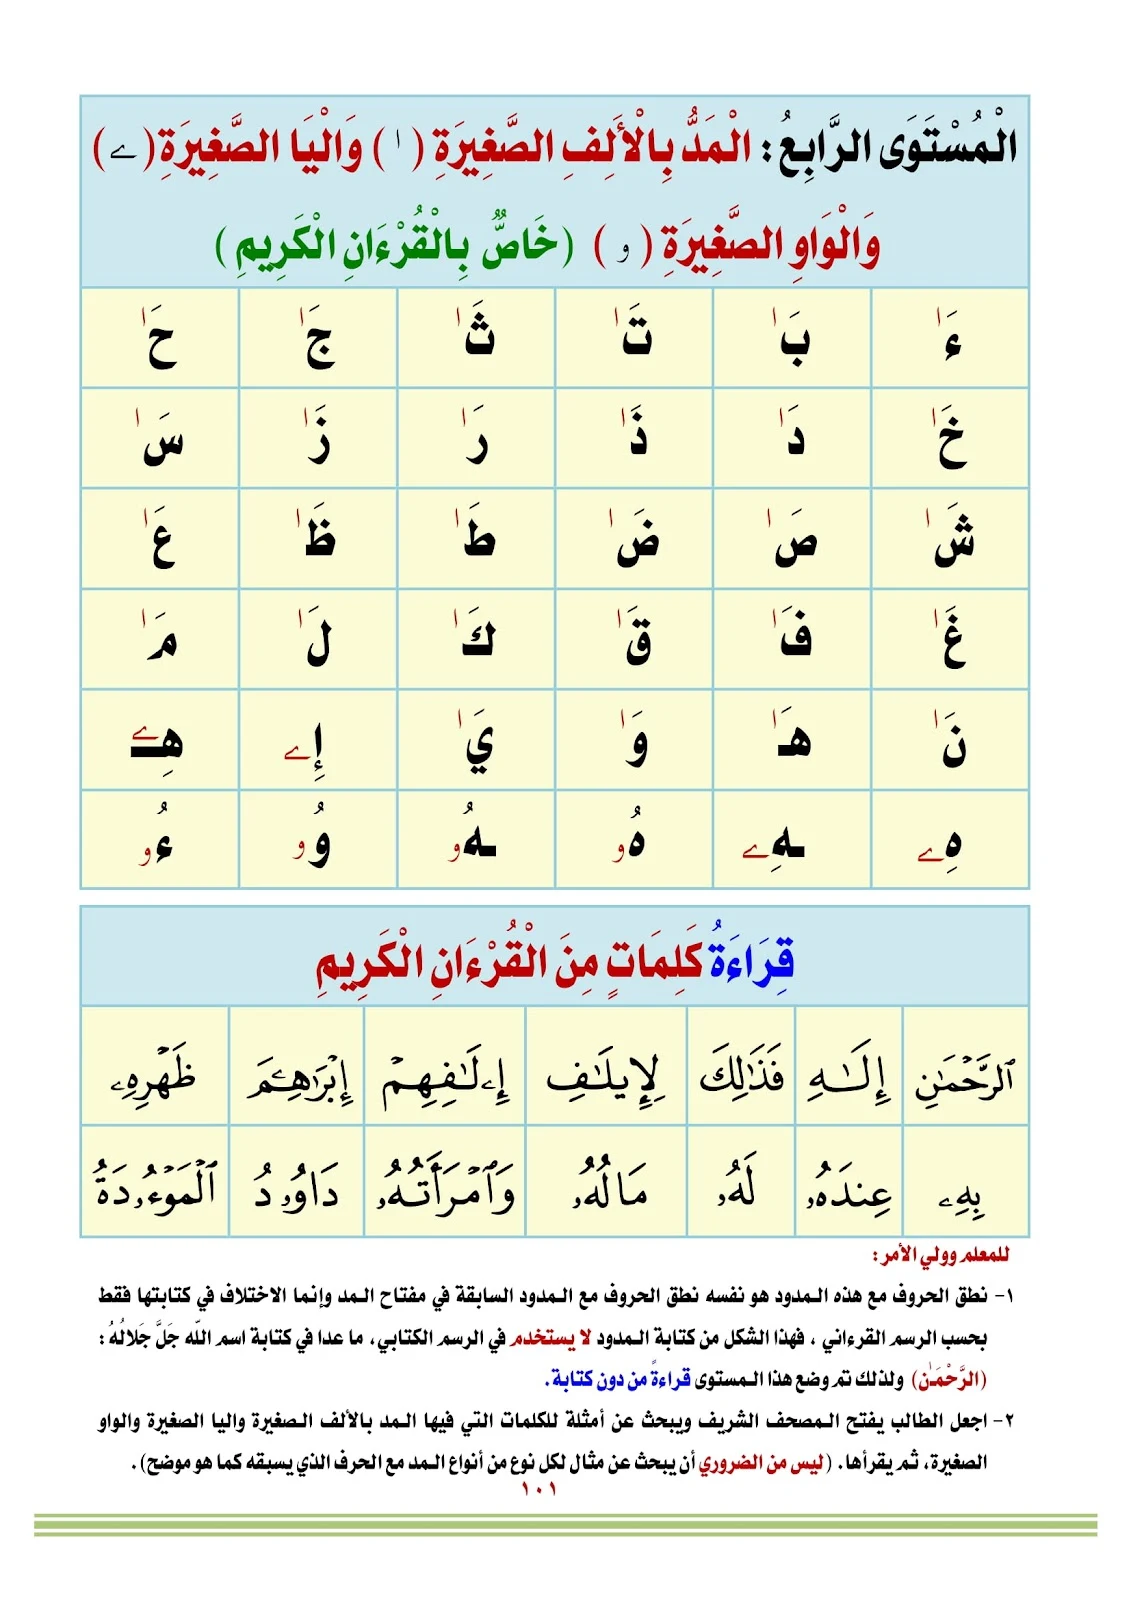 الْمُسْتَوَى الرَّابِعُ: الْمَدُّ بِالْأَلِفِ الصَّغِيرَةِ ( ا ) وَالْيَا الصَّغِيرَةِ ( ے )
وَالْوَاوِ الصَّغِيرَةِ ( و ) (خَاصٌّ بِالْقُرْءَانِ الْكَرِيمِ )
ءَٰ بَٰ تَٰ ثَٰ جَٰ حَٰ
خَٰ دَٰ ذَٰ رَٰ زَٰ سَٰ
شَٰ صَٰ ضَٰ طَٰ ظَٰ عَٰ
غَٰ فَٰ قَٰ كَٰ لَٰ مَٰ
نَٰ هَـٰ وَٰ يَٰ إِے هِـے
هِے ـهِے هُو ـهُو وُو ءُو
قِرَاءَةُ كَلِمَاتٍ مِنَ الْقُرْءَانِ الْكَرِيمِ
ٱلرَّحْمَـٰنِ إِلَـٰهِ فَذَٰلِكَ لِإِيلَـٰفِ إِۦلَـٰفِهِمْ إِبْرَٰهِـۧمَ ظَهْرِهِۦ
بِهِۦ عِندَهُۥ لَهُۥ مَالُهُۥ وَٱمْرَأَتُهُۥ دَاوُۥدُ ٱلْمَوْءُۥدَةُ
للمعلم وولي الأمر:
١- نطق الحروف مع هذه المدود هو نفسه نطق الحروف مع المدود السابقة في مفتاح المد وإنما الاختلاف في كتابتها فقط
بحسب الرسم القرءاني ، فهذا الشكل من كتابة المدود لا يستخدم في الرسم الكتابي، ما عدا في كتابة اسم الله جَلَّ جَلالُهُ :
(الرَّحْمَـٰن) ولذلك تم وضع هذا المستوى قراءةً من دون كتابة.
٢- اجعل الطالب يفتح المصحف الشريف ويبحث عن أمثلة للكلمات التي فيها المد بالألف الصغيرة واليا الصغيرة والواو
الصغيرة، ثم يقرأها. (ليس من الضروري أن يبحث عن مثال لكل نوع من أنواع المد مع الحرف الذي يسبقه كما هو موضح).
١٠١